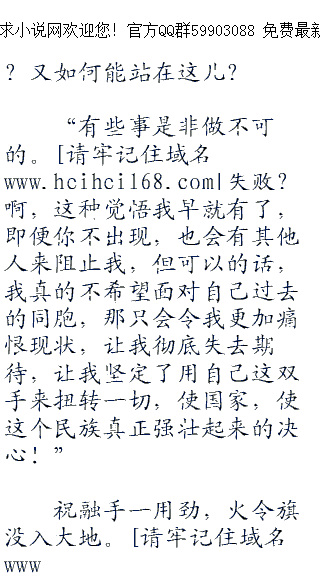 求小说网欢迎您！官方QQ群59903088 免费最新
？又如何能站在这儿？
“有些事是非做不可
的。[请牢记住域名
www.hcihcil68.com|失败？
啊，这种觉悟我早就有了，
即便你不出现，也会有其他
人来阻止我，但可以的话，
我真的不希望面对自己过去
的同胞，那只会令我更加痛
恨现状，让我彻底失去期
待，让我坚定了用自己这双
手来扭转一切，使国家，使
这个民族真正强壮起来的决
心！”
祝融手一用劲，火令旗
没入大地。[请牢记住域名
www